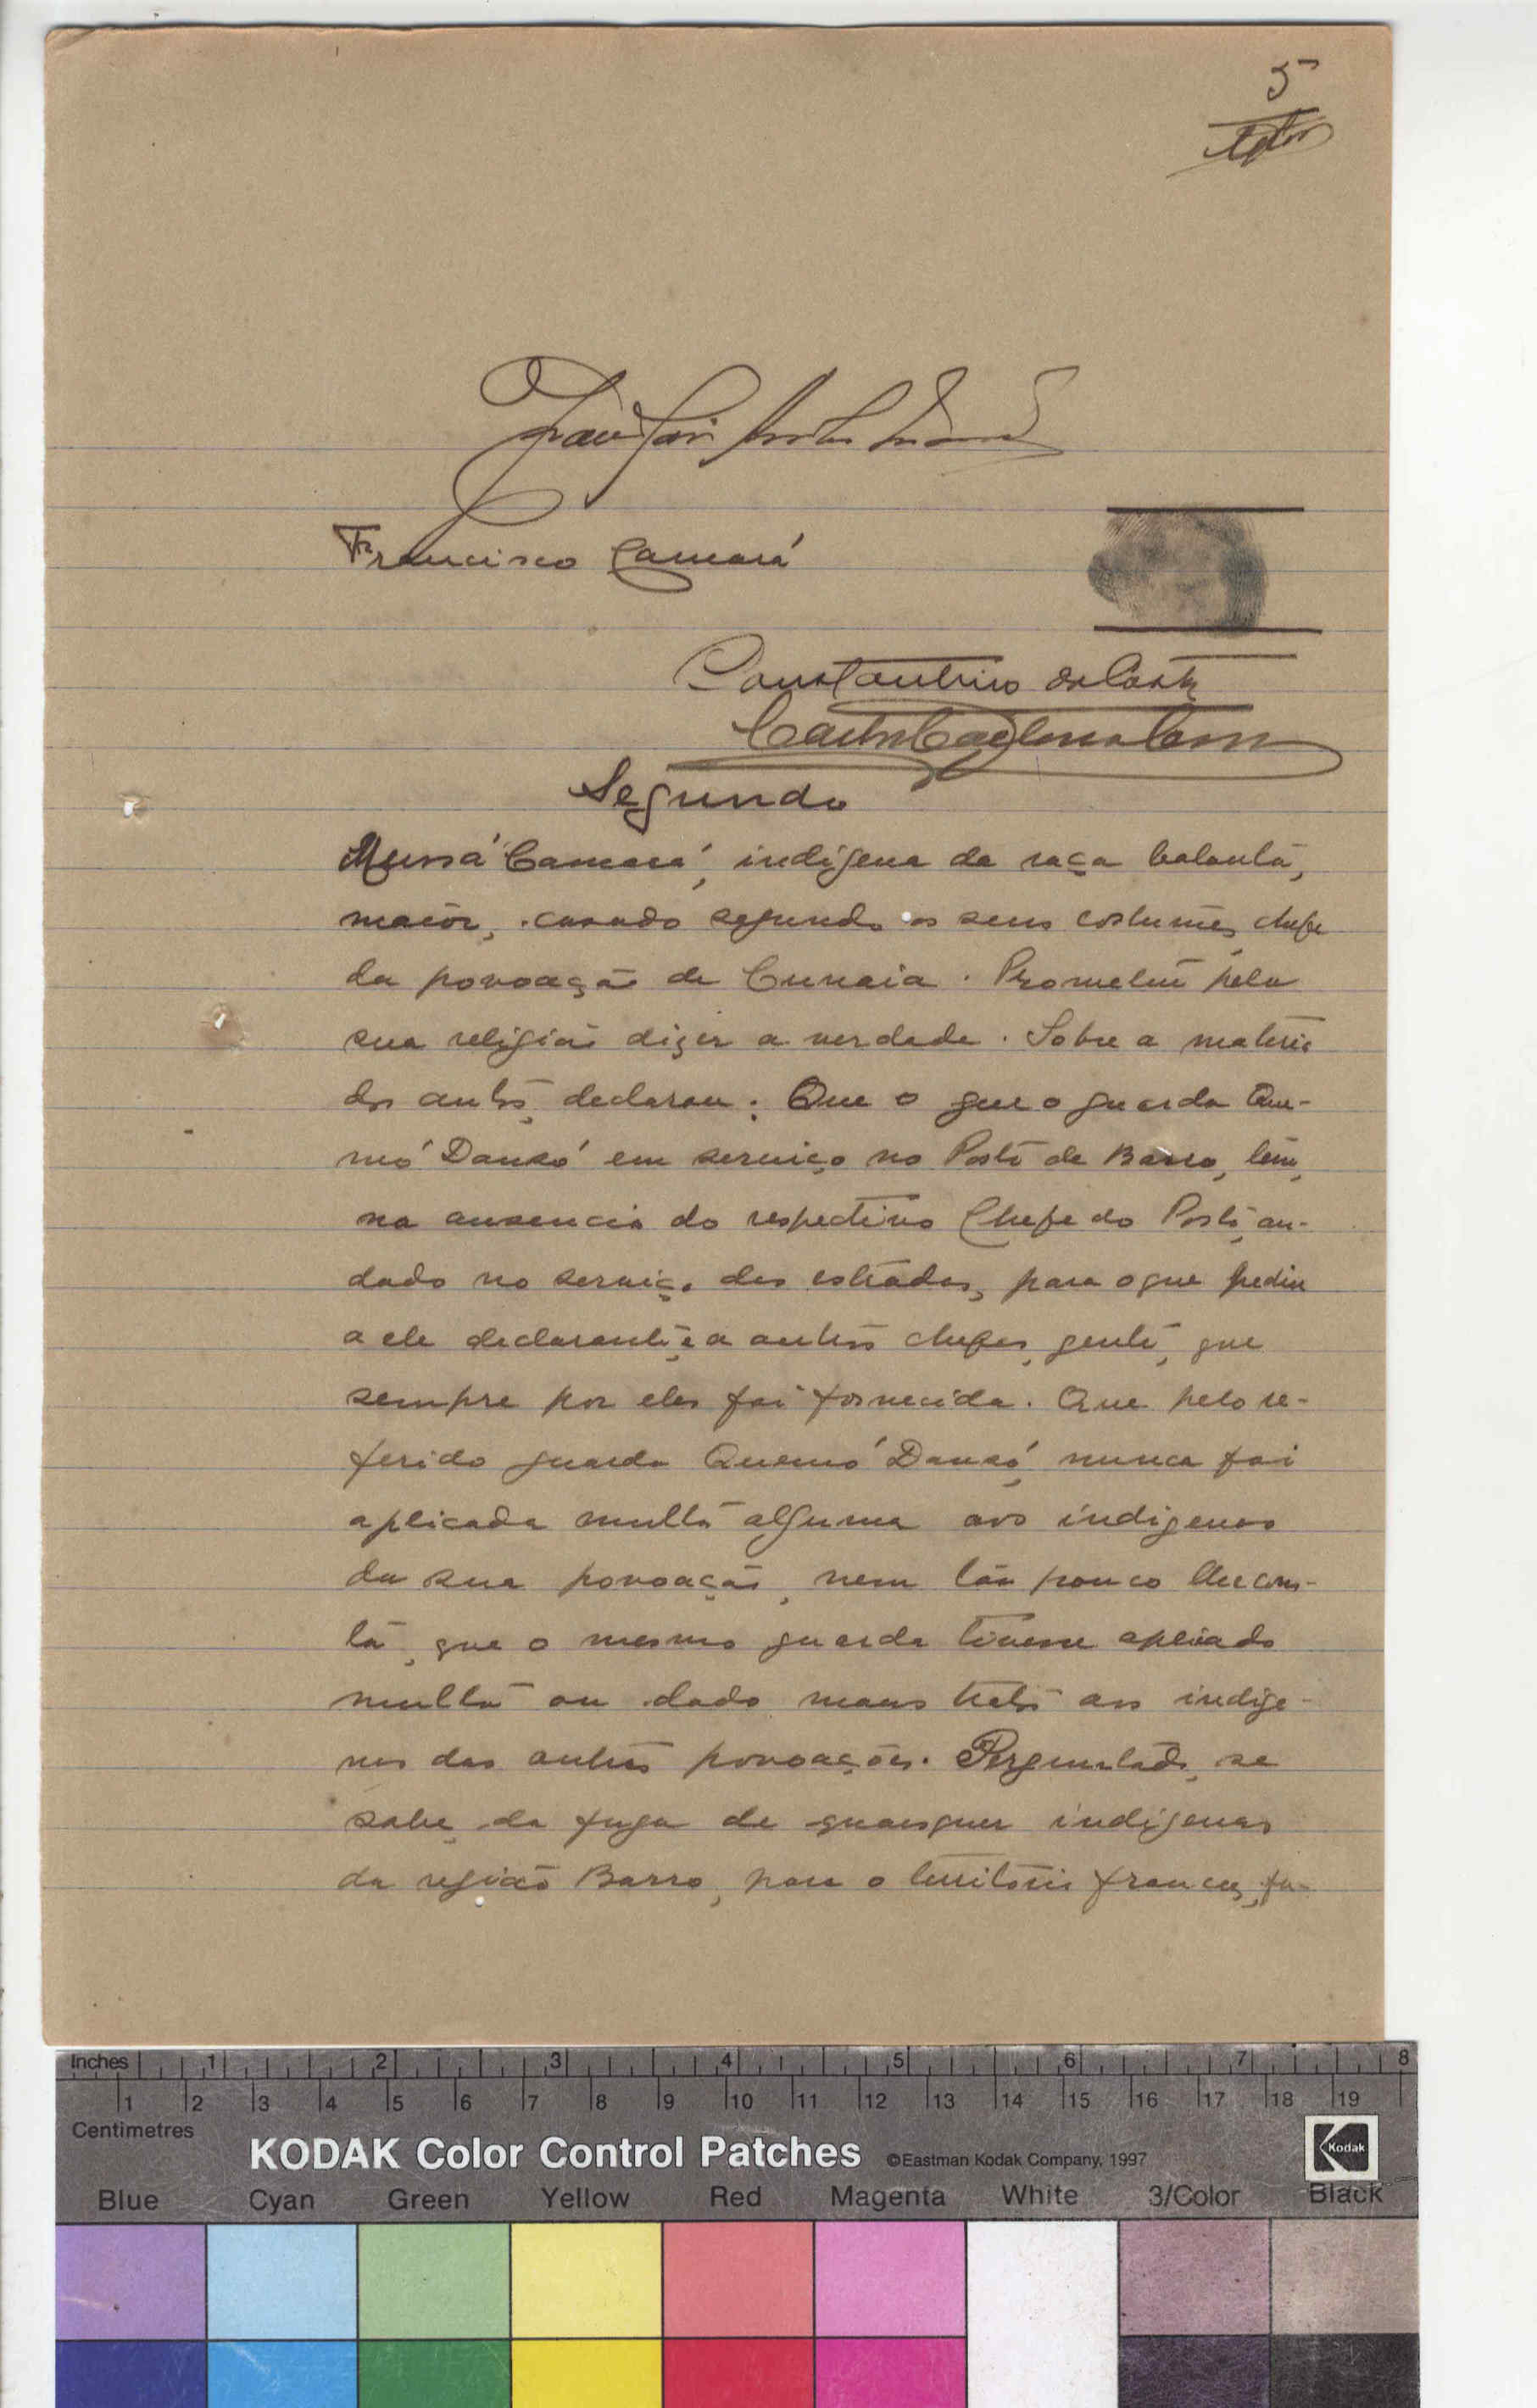 5
Francisco Camará
Constantino da Costa
Segundo
Mussá Camará, indígena da raça balanta,
maior, casado segundo os seus costumes, chefe
da povoação de Cunaia. Prometeu pela
sua religião dizer a verdade. Sobre a materia
dos autos, declarou: Que o que o guarda Que-
mó Dansó em serviço no Posto de Barro, tem,
na ausencia do respectivo Chefe do Posto, an-
dado no serviço das estradas, para o que pediu
a ele declarante, e a outros chefes, gente, que
sempre por eles foi fornecida. Que pelo re-
ferido guarda Quemó Dansó, nunca foi
aplicada multa alguma aos indigenas
da sua povoação, nem tão pouco lhe cons-
ta, que o mesmo guarda tivesse aplicado
multa ou dado maus tratos aos indige-
nas das outras povoações. Perguntado, se
sabe, da fuga de quaisquer indígenas
da região Barro, para o território francez, fu-
Inches 1 2 3 4 5 6 7 8
1 2 3 4 5 6 7 8 9 10 11 12 13 14 15 16 17 18 19
Centimetres
KODAK Color Control Patches ©Eastman Kodak Company, 1997 Kodak
Blue Cyan Green Yellow Red Magenta White 3/Color Black